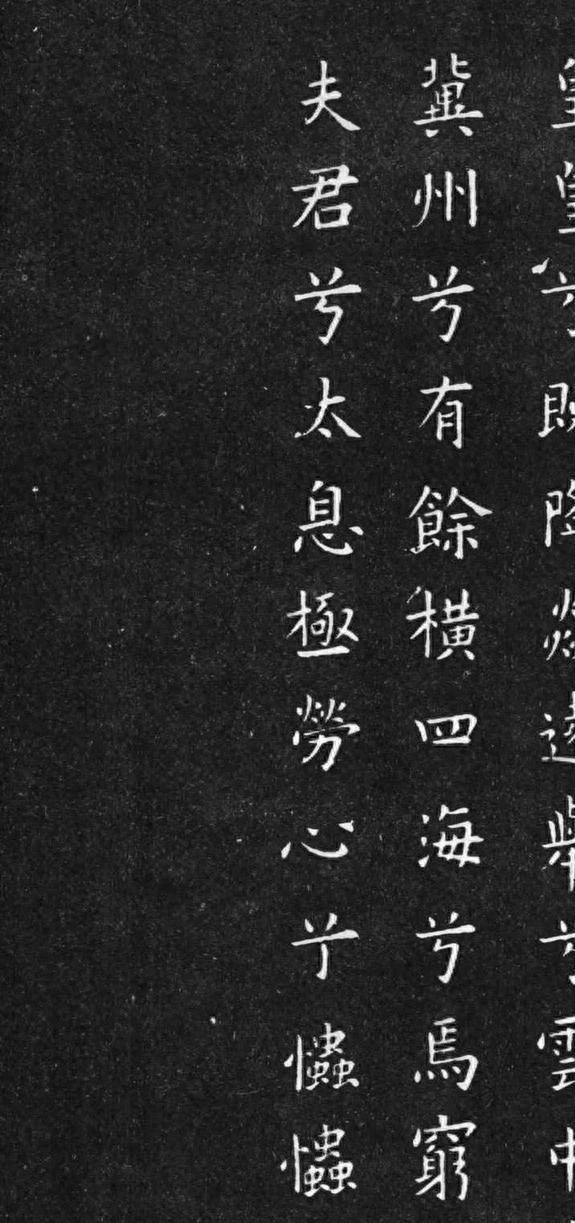 皇皇兮既降焱遠舉兮雲中
冀州兮有餘橫四海兮焉窮
夫君兮太息極勞心兮𢥞𢥞